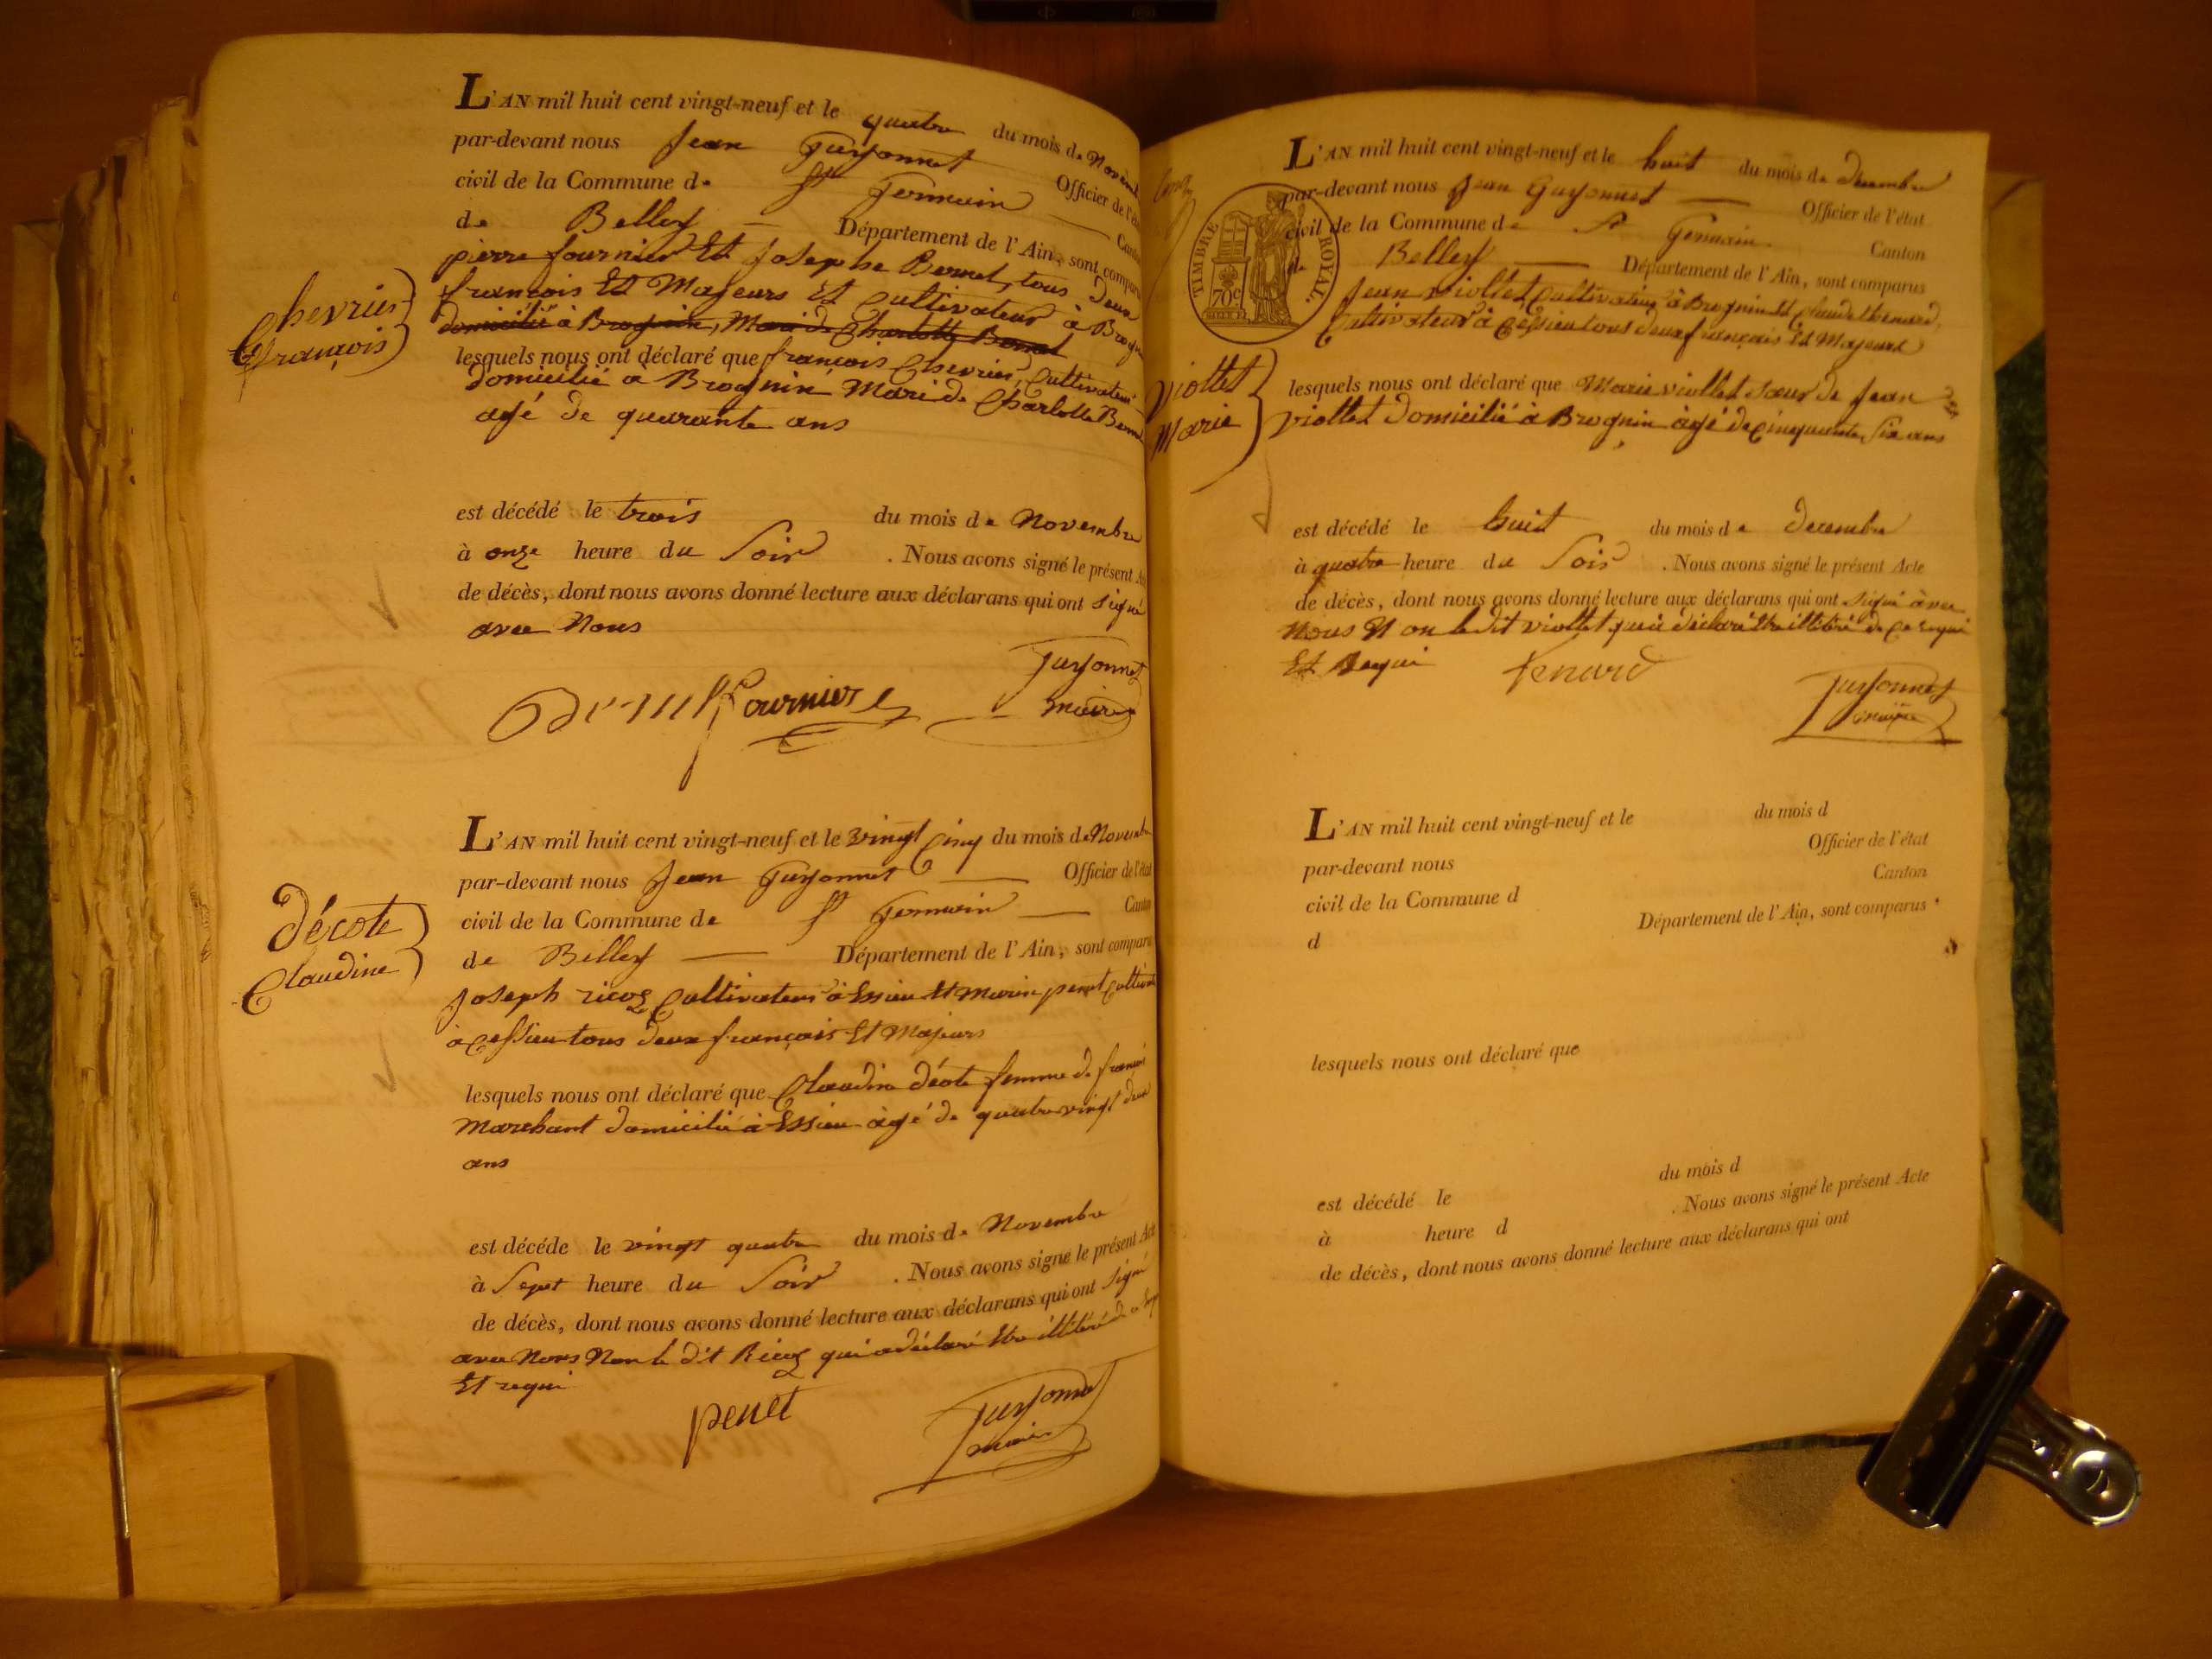 L'AN mil huit cent vingt-neuf et le quatre du mois de Novemb
par-devant nous Jean Guyonnet Officier de l'éta
civil de la Commune de St Germain Canton
de Belley Département de l'Ain, sont comparu
pierre fournier Et Josephe Bernet, tous deux
françois Et Majeurs Et Cultivateur à Brogn
domicilié à Brognin, Mari de Charlotte Bernet
Chevrier
françois
lesquels nous ont déclaré que françois Chevrier, Cultivateur
domicilié à Brognin Mari de Charlotte Berne
agé de quarante ans
est décédé le trois du mois de Novembre
à onze heure du Soir . Nous avons signé le présent A
de décès, dont nous avons donné lecture aux déclarans qui ont signé
avec Nous
fournier Guyonnet
maire
L'AN mil huit cent vingt-neuf et le vingt Cinq du mois de Novembre
par-devant nous Jean Guyonnet Officier de l'état
civil de la Commune de St Germain Canton
de Belley Département de l'Ain, sont comparu
décote
Claudine
Joseph ricoz Cultivateur à Essieu Et Marin penet Cultivat
à Cessieu tous deux français Et Majeurs
lesquels nous ont déclaré que Claudine décote femme de françois
Marchant domicilié à Essieu agé de quatrevingt deux
ans
est décéde le vingt quatre du mois de Novembre
à Sept heure du Soir . Nous avons signé le présent Act
de décès, dont nous avons donné lecture aux déclarans qui ont signé
avec Nous Non le dit Ricoz qui a déclaré Etre illitéré de ce
Et requi
penet Guyonnet
maire
L'AN mil huit cent vingt-neuf et le huit du mois de decembre
par-devant nous Jean Guyonnet Officier de l'état
civil de la Commune de St Germain Canton
de Belley Département de l'Ain, sont comparus
TIMBRE ROYAL.
70c
Jean Viollet Cultivateur à Brognin Et Claude thenard,
Cultivateur à Cessieu tous deux français Et Majeurs
Viollet
Marie
lesquels nous ont déclaré que Marie viollet sœur de Jean
viollet domicilié à Brognin agé de Cinquante Six ans
est décédé le huit du mois de decembre
à quatre heure du Soir . Nous avons signé le présent Acte
de décès, dont nous avons donné lecture aux déclarans qui ont signé avec
Nous Non le dit viollet qui à déclaré Etre illitéré de Ce enqui
Et Requi
tenard
Guyonnet
maire
L'AN mil huit cent vingt-neuf et le du mois d
par-devant nous Officier de l'état
civil de la Commune d Canton
d Département de l'Ain, sont comparus
lesquels nous ont déclaré que
est décédé le du mois d
à heure d . Nous avons signé le présent Acte
de décès, dont nous avons donné lecture aux déclarans qui ont